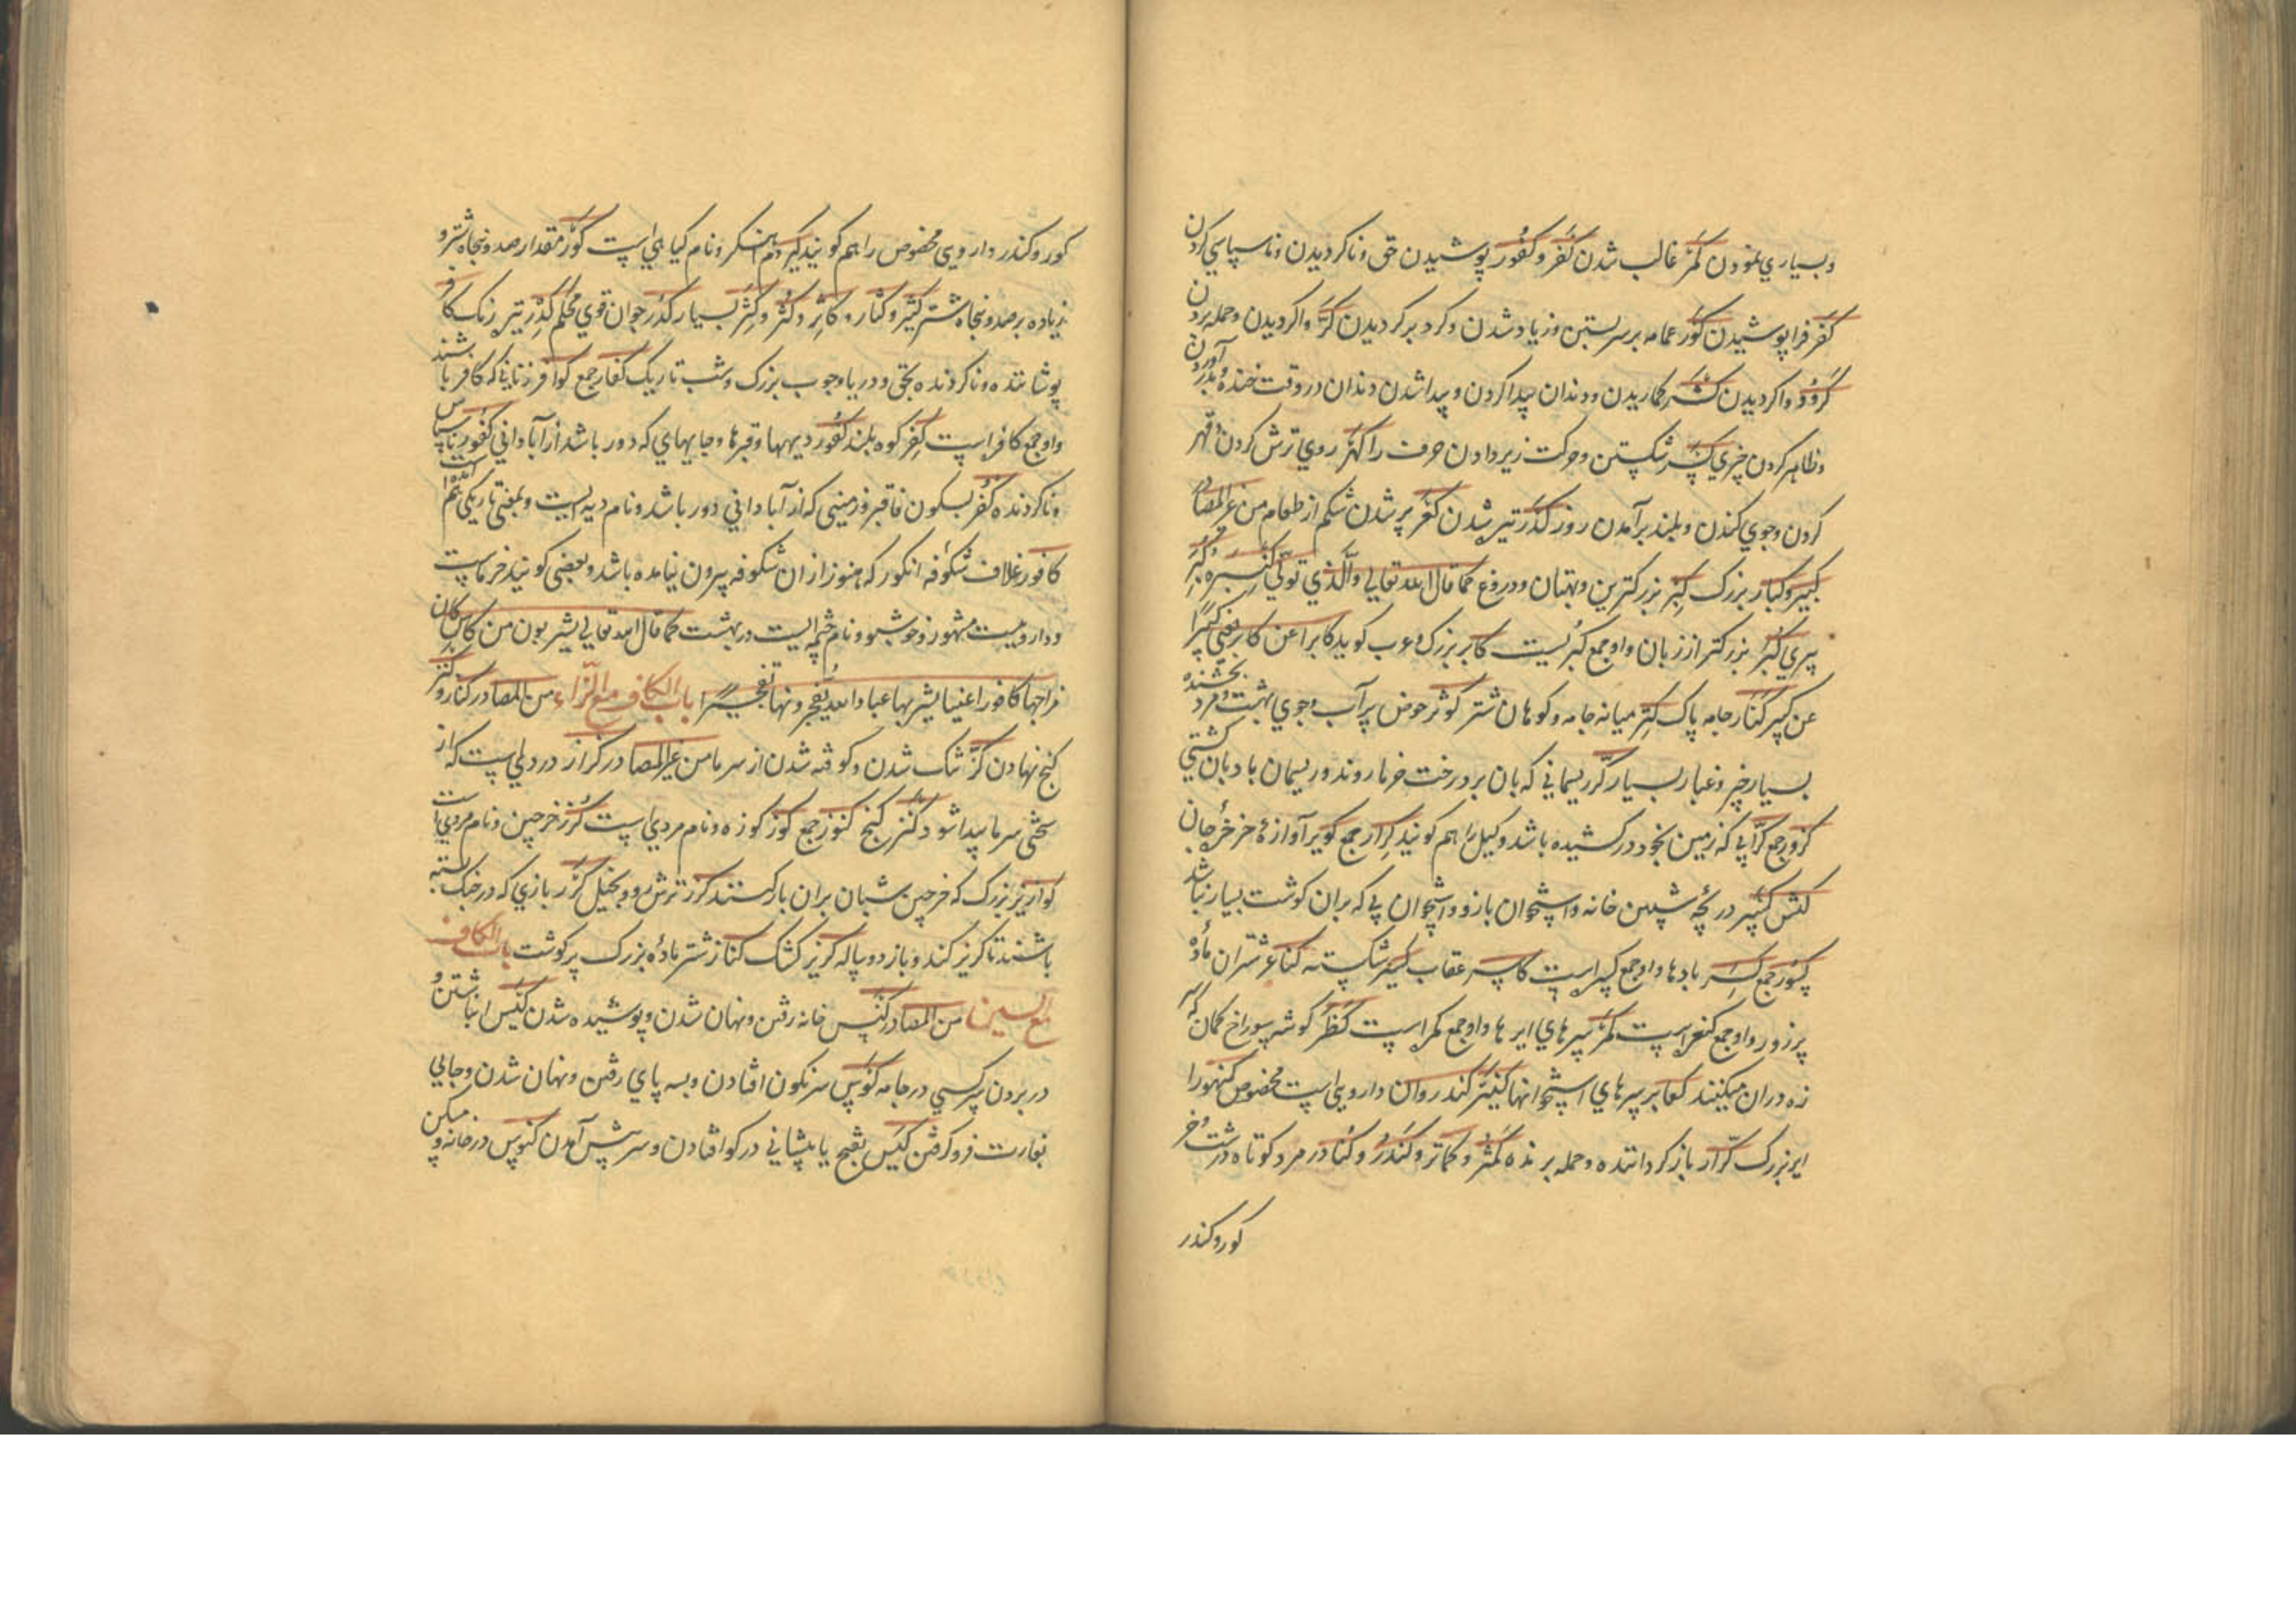 وبسیاري نمودن كَمْر غالب شدن كَفْر وكُفُور پوشیدن حق وناکردیدن وناسپاسي کردن
كَفْر فرا پوشیدن كَوْر عمامه بر سر بستن وزیاد شدن وکرد بر کردیدن كَرّ واکردیدن وحمله بردن
كُرُور واکردیدن كَشْر کماریدن ودندان پیدا کردن وپیدا شدن دندان در وقت خنده
وظاهر کردن چیزي كَسْر شکستن وحرکت زیر دادن حرف را كَهْر روي ترش کردن وقهر
کردن وجوي کندن وبلند برآمدن روز كَدَر تیره شدن كَعَر پر شدن شکم از طعام من غیر المصادر
كبیر وكُبَار بزرک كِبْر بزرکترین وبهتان ودروغ کما قال الله تعالي والّذي تولّي كبره
پیري كُبْر بزرکتر از زبان واو جمع کبریست كابر بزرک وعرب کوید كابرا عن كابر یعني كبیرا
عن كبیر جامه پاک كِتْر میانه جامه وکوهان شتر كوثر حوض پرآب وجوي بهشت ومرد بخشنده
بسیار خیر وغبار بسیار كَرّ ریسماني که بان بر درخت خرما روند وریسمان بادبان کشتي
كُرُور جمع كُرّ آبي که زمین بخود در کشیده باشد وکیل را هم کویند كِرار جمع كریر آوازهٔ خرخر جان
كندن كِسْر دریچه شیبین خانه واستخوان بازو واستخوان پي که بران کوشت بسیار نباشد
كسور جمع كاسر عقاب كسیر شکسته كناعر شتران مادهٔ
پر زور واو جمع کنعر است كَمَر سرهاي ایرها واو جمع کمره است كُظْر کوشه سوراخ کمان که
زه دران میکنند كعابر سرهاي استخوانها كندر روان دارویي است مخصوص كنهور ابر
ابر بزرک كرّار باز کرداننده وحمله برنده وكُنْدُر وكُنادر مرد کوتاه درشت وخر
کور وکندر
کور وکندر دارویي مخصوص را هم کویند كیر دم اهنکر ونام کیاهي است كَوْر مقدار صد وپنجاه شتر و
زیاده بر صد وپنجاه شتر كثیر وكُثار وكاثر وكُثْر وكِثْر بسیار كُدُر جوان قوي محکم كَدِر تیره رنک كافر
پوشاننده وناکرونده بحق ودریا وجوب بزرک وشب تاریک كفّار جمع كوافر زناني که کافر باشند
واو جمع کافره است كَفْر کوه بلند كُفُور دیهها وقبرها وجایهاي که دور باشد از آباداني كَفُور ناسپاس
وناکرونده كَفْر بسکون فا قبر وزمیني که از آباداني دور باشد ونام دیه ایست وبمعني تاریکي هم
كافور غلاف شکوفه انکور که هنوز از ان شکوفه بیرون نیامده باشد وبعضي کویند خرماست
وداروییست مشهور وخوشبو ونام چشمه ایست در بهشت کما قال الله تعالي یشربون من كأس كان
مزاجها كافورا عینا یشرب بها عباد الله یفجّرونها تفجیرا باب الكاف مع الزّاء من المصادر كناز وكَنْز
کنج نهادن كَزّ خشک شدن وکوفته شدن از سرما من غیر المصادر كُزاز دردي است که از
سختي سرما پیدا شود كَنْز کنج كنوز جمع كوز کوزه ونام مردي است كُرْز خرجین ونام مردي است
كرّاز بز بزرک که خرجین شبان بران بار کنند كُرَّز ترشرو وبخیل كُرَّز بازي که در جنک بسته
باشند تا کریز کند وباز دوساله كریز کشک كناز شتر مادهٔ بزرک پر کوشت باب الكاف
مع السین من المصادر كَنْس خانه رفتن ونهان شدن وپوشیده شدن كَبْس انباشتن و
در بردن سر کسي در جامه كَوْس سرنکون افتادن وبسه پاي رفتن ونهان شدن وجائي
بغارت فرو کرفتن كَبَس بفتح با پیشاني در کو افتادن وسر پیش آمدن كنوس در خانه ومسکن